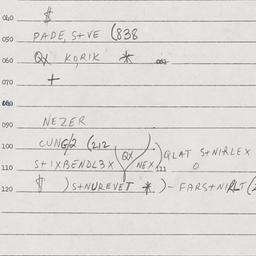 040 $
050 PADE, S+VE (838
060 QX KORIK *
070 +
080
090 NEZER
100 CUNG/2 (212 QX ) QLAT S+NIRLEX
110 S+1XBENDL3X NEX 111 O
120 $ ) S+NUREVET * )- FARS+NIRLT (2